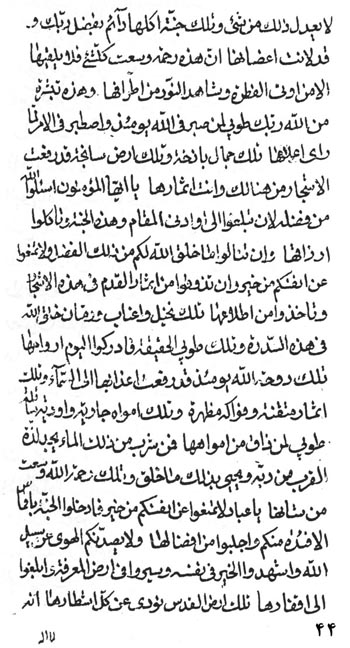 لا يعدل ذلك من شئ وتلك جنة اكلها دآئم بفضل ربك و
قد لانت اعضانها ان هذه رحمة وسعت كلشئ فلا يلقيها
الا من اوتى الفطرة وشاهد النور من اطرافها وهذه تبشرة
من الله ربك طوبى لمن صبر فى الله يومئذ واصطبر فى الامر لما
راى اعلامها تلك جبال باذخة وتلك ارض سانحة قد رفعت
الاشجار من هنالك وانت اثمارها يا ايها المؤمنون اسئلوا الله
من فضله لان تبلغوا الى او ادنى المقام وهذه الجنة وتاكلوا
ارزاقها وان تنالوا ما خلق الله لكم من ذلك الفضل ولا تمنعوا
عن انفسكم من خير وان تذوقوا من اثمار القدم فى هذه الاشجار
وتاخذوا من اطلاعها تلك نخيل واعناب ورمان خلق الله
فى هذه السدرة وتلك طوبى الحقيقة فادركوا اليوم ارواحها
تلك دوحة الله يومئذ قد رفعت اغصانها الى السمآء وتلك
اثمار متقنة وفواكه مطهرة وتلك امواه جارية واودية
طوبى لمن ذاق من امواهها فمن يشرب من ذلك الماء يجد لذة
القرب من ربه ويحيى بذلك ما خلق وتلك رحمة الله وسعت
من شانها يا عباد لا تمنعوا عن انفسكم من خير فادخلوا الجنة
الافئدة منكم واجلبوا من افضالها ولا يصدنكم الهوى عن سبيل
الله واستهدوا الخير فى نفسه وسيروا فى ارض المعرفة وابلغوا
الى اقتدارها تلك ارض القدس تؤدى عن كل اسطارها انه
۴۴